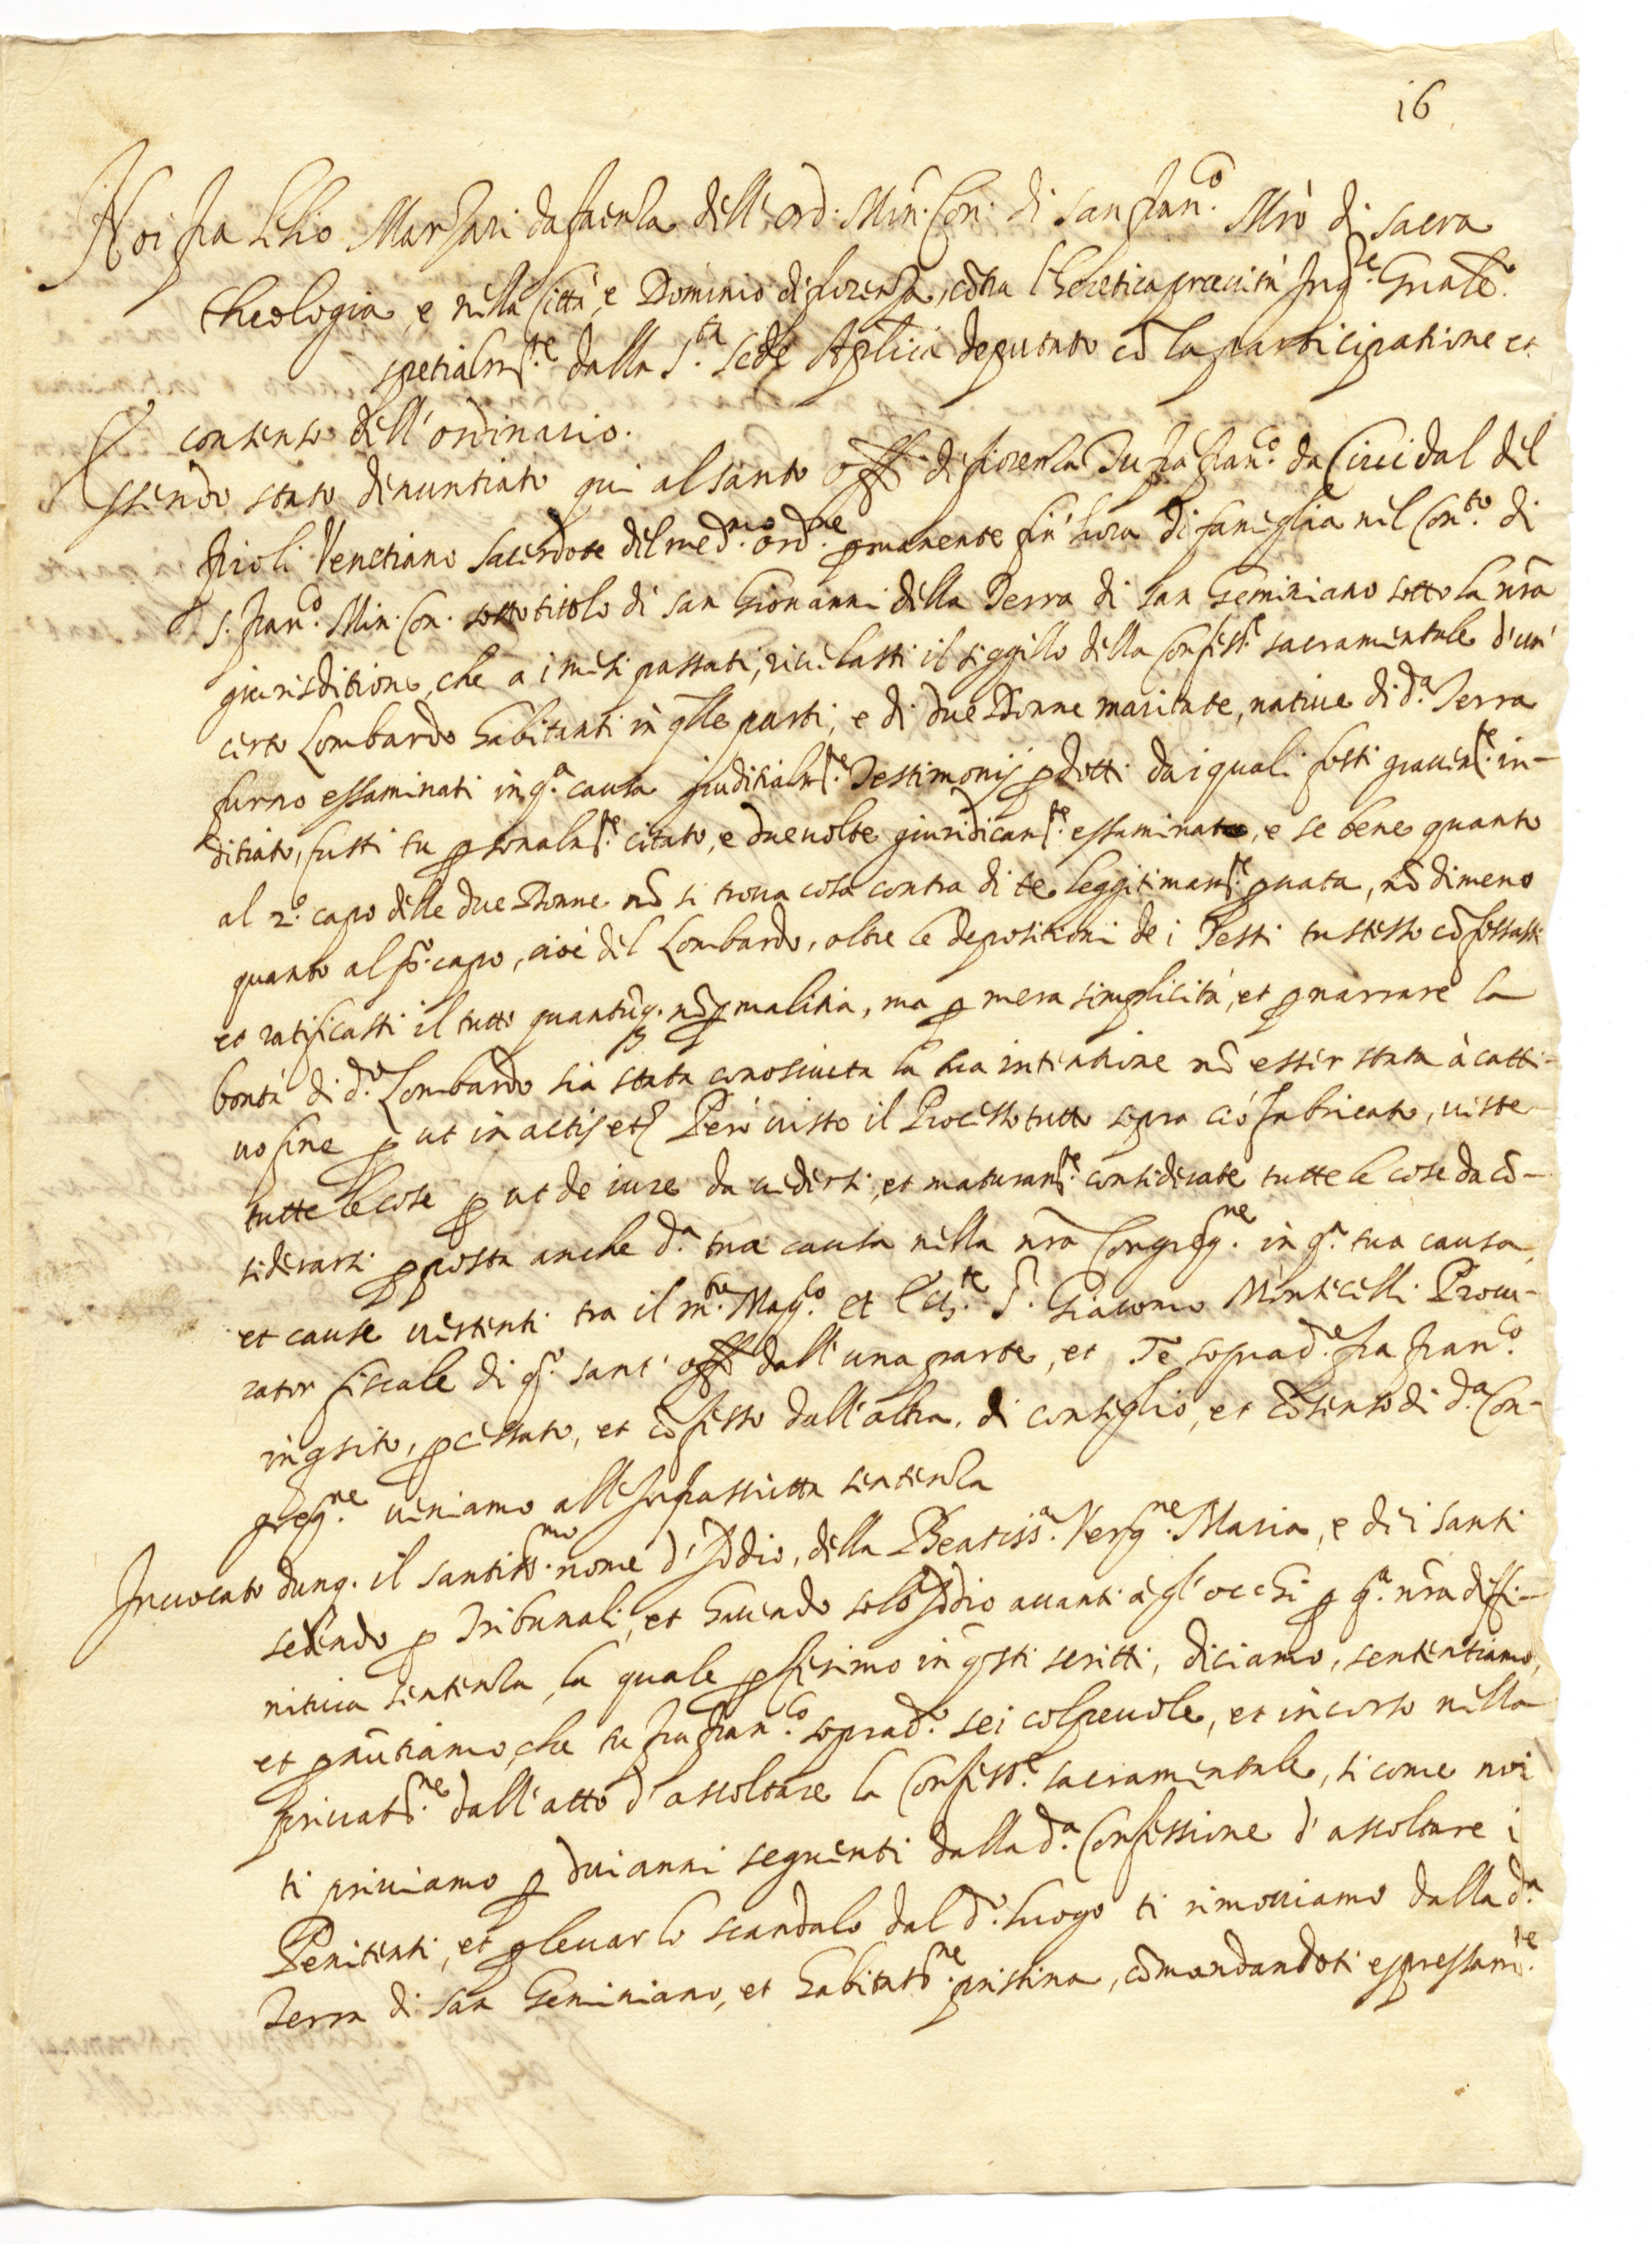 16
Noi fra Lelio Marzari da faenza dell'ord. Min. Con. di san fran.co Mrò di sacra
theologia, e nella Città, e Dominio di fiorenza, cōtra l'heretica pravità Inq.re Gñale
spetialm.te dalla S.ta Sede Aplica deputato cō la participatione et
consenso dell'ordinario.
Essendo stato denuntiato qui al santo off.o di fiorenza Tu fra fran.co da Cividal del
frioli Venetiano sacerdote del med.mo ord.ne pmanente fin'hora di fameglia nel Con.to di
S. fran.co Min. Con. sotto titolo di san Giovanni della Terra di san Geminiano sotto la nrã
giurisditione, che a i mesi passati, rivelasti il siggillo della Confess.e sacramentale d'un'
certo Lombardo habitanti in qlle parti, e di due Donne maritate, native di d.a Terra
furno essaminati in q.a causa giuditialm.te Testimonij pdotti da i quali fosti gravem.te in-
ditiato, fusti tu psonalm.te citato, e due volte giuridicam.te essaminato, e se bene quanto
al 2.o capo delle due Donne nō si trova cosa contra di te leggitimam.te pvata, nō dimeno
quanto al p.o capo, cioè del Lombardo, oltre le depositioni de i Testi tu stesso cōfessasti
et ratificasti il tutto quantūq. nō p malitia, ma p mera simplicità, et p narrare la
bontà di d.o Lombardo sia stata conosciuta la tua intentione nō esser stata à catti-
vo fine p ut in actis etc. Però visto il Processo tutto sopra ciò fabricato, viste
tutte le cose p ut de iure da vedersi, et maturam.te considerate tutte le cose da cō-
siderarsi pposta anche d.a tua causa nella nrã Congreg.ne in q.a tua causa,
et cause vertenti tra il m.to Mag.co et Ecc.te S. Giacomo Monticelli Procu-
rator fiscale di q.o sant'off.o dall'una parte, et Te soprad.o fra fran.co
inqsito, pcessato, et cōfesso dall'altra, di consiglio, et cōsenso di d.a Con-
greg.ne veniamo all'Infrascritta sentenza
Invocato dunq. il santiss.mo nome d'Iddio, della Beatiss.a Verg.ne Maria, e de i santi
sedendo p Tribunali, et havendo solo Iddio avanti à gl'occhi p q.a nrã diffi-
nitiva sentenza, la quale pferimo in qsti scritti, diciamo, sententiamo,
et pnūtiamo, che tu fra fran.co soprad.o sei colpevole, et incorso nella
privat.ne dall'atto d'ascoltare la Confess.e sacramentale, si come noi
ti priviamo p dui anni seguenti dalla d.a Confessione d'ascoltare i
Penitenti, et p levar lo scandalo dal d.o luogo ti rimoviamo dalla d.a
Terra di san Geminiano, et habitat.ne pristina, cōmandandoti espressam.te